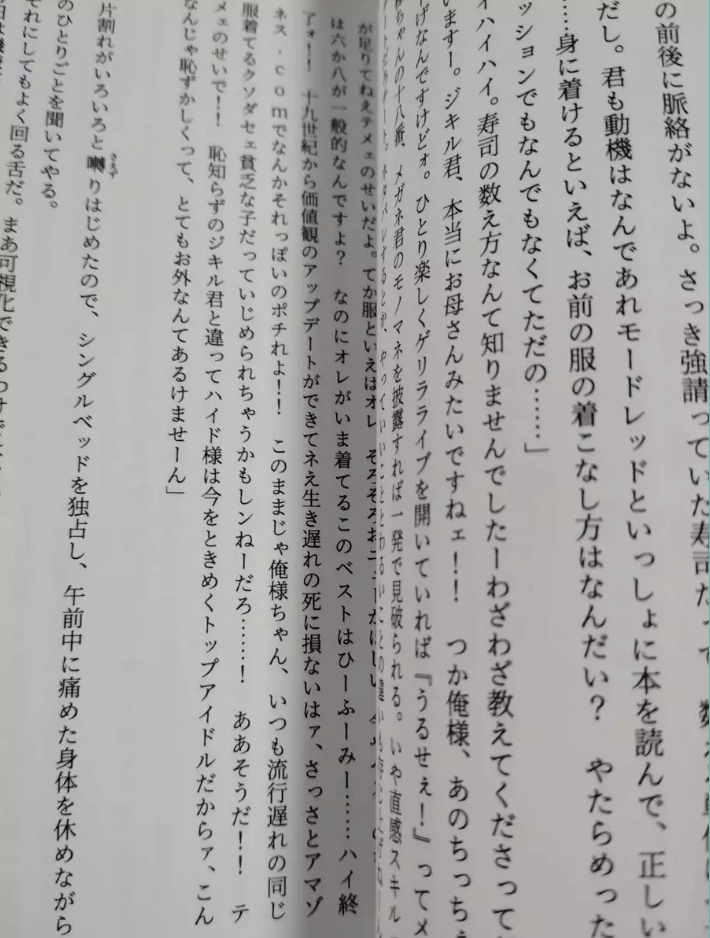 の前後に脈絡がないよ。さっき強請っていた寿司だって、数
だし。君も動機はなんであれモードレッドといっしょに本を読んで、正しい
……身に着けるといえば、お前の服の着こなし方はなんだい？　やたらめった
ッションでもなんでもなくてただの……」
ハイハイ。寿司の数え方なんて知りませんでしたーわざわざ教えてくださって
いますー。ジキル君、本当にお母さんみたいですねェ！！　つか俺様、あのちっちぇ
げなんですけどォ。ひとり楽しくゲリラライブを開いていれば『うるせぇ！』ってメ
ちゃんの十八番、メガネ君のモノマネを披露すれば一発で見破られる。いや直感スキル
が足りてねえテメェのせいだよ。てか服といえばオレ、そろそろおニューがほしい
は六か八が一般的なんですよ？　なのにオレがいま着てるこのベストはひーふーみー……ハイ終
アォ！！　十九世紀から価値観のアップデートができてネえ生き遅れの死に損ないはァ、さっさとアマゾ
ネス．ｃｏｍでなんかそれっぽいのポチれよ！！　このままじゃ俺様ちゃん、いつも流行遅れの同じ
服着てるクソダセェ貧乏な子だっていじめられちゃうかもしンねーだろ……！　ああそうだ！！　テ
メェのせいで！！　恥知らずのジキル君と違ってハイド様は今をときめくトップアイドルだからァ、こん
なんじゃ恥ずかしくって、とてもお外なんてあるけませーん」
片割れがいろいろと囀りはじめたので、シングルベッドを独占し、午前中に痛めた身体を休めながら
のひとりごとを聞いてやる。
それにしてもよく回る舌だ。まあ可視化できるわけでは